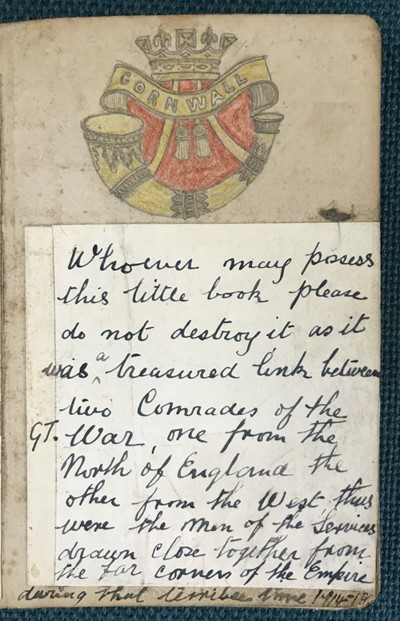 CORNWALL
Whoever may possess
this little book please
do not destroy it as it
was a treasured link between
two Comrades of the
GT. War, one from the
North of England the
other from the West thus
were the men of the Services
drawn close together from
the far corners of the Empire
during that terrible time 1914-18